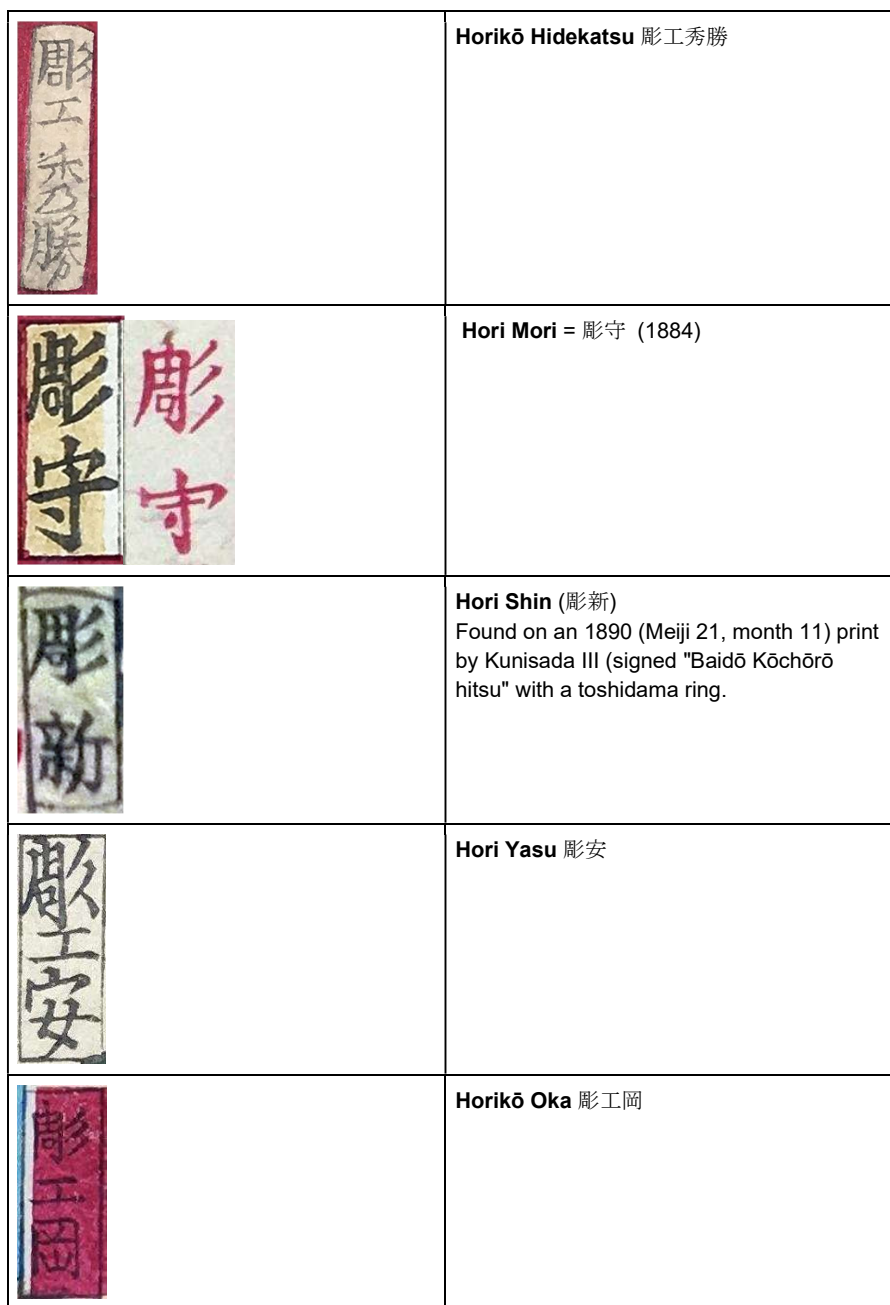 彫工秀勝
Horikō Hidekatsu 彫工秀勝
彫守
彫守
Hori Mori = 彫守 (1884)
彫新
Hori Shin (彫新)
Found on an 1890 (Meiji 21, month 11) print
by Kunisada III (signed "Baidō Kōchōrō
hitsu" with a toshidama ring.
彫工安
Hori Yasu 彫安
彫工岡
Horikō Oka 彫工岡